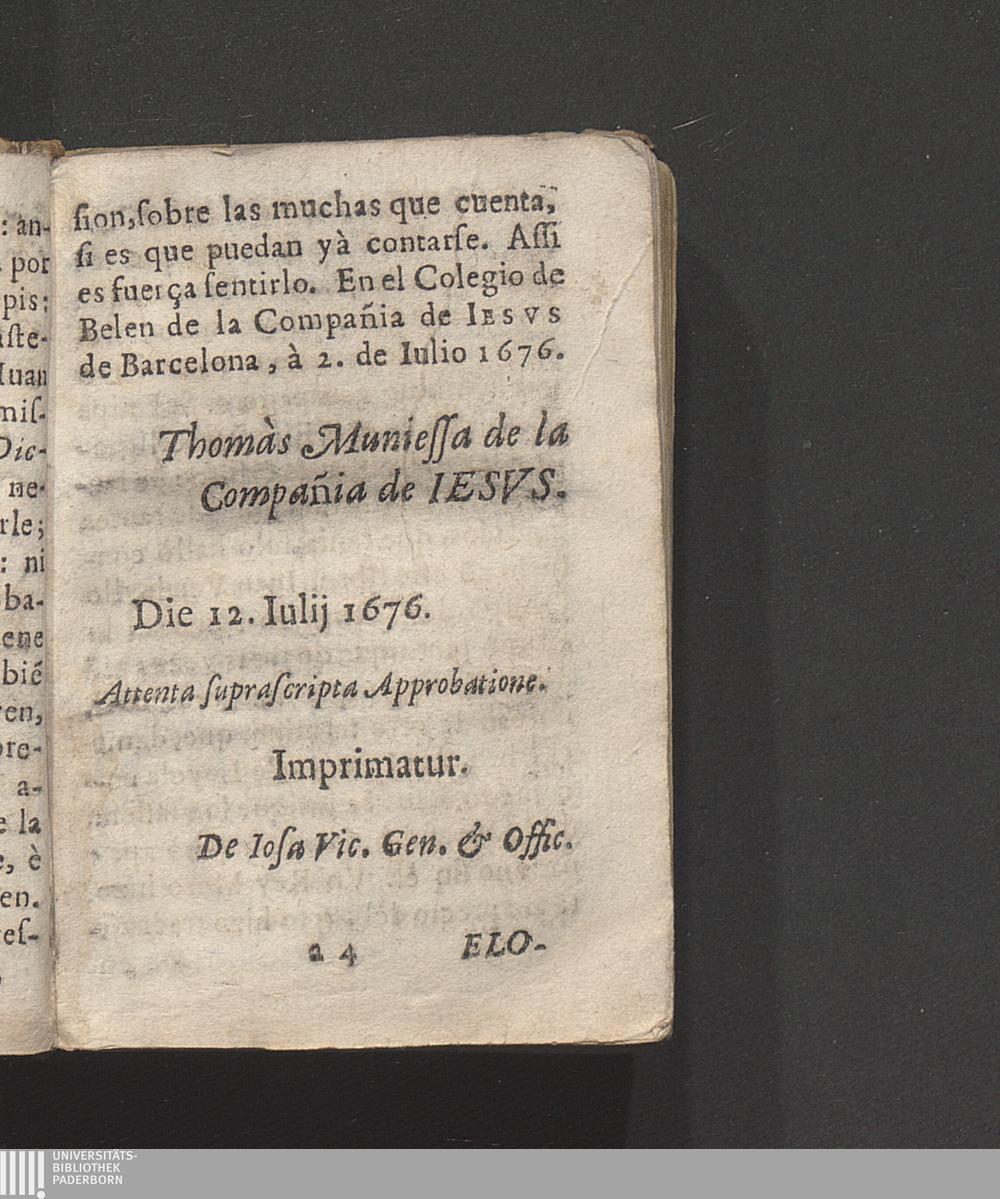 : an-
por
pis:
aste-
Iuan
mis-
Dic-
ne-
rle;
: ni
ba-
ene
bié
ren,
pre-
a-
e la
e, è
en.
eſ-
ſion, ſobre las muchas que cuenta,
ſi es que puedan yà contarſe. Aſſi
es fuerça ſentirlo. En el Colegio de
Belen de la Compañia de IESVS
de Barcelona, à 2. de Iulio 1676.
Thomàs Munieſſa de la
Compañia de IESVS.
Die 12. Iulij 1676.
Attenta ſupraſcripta Approbatione.
Imprimatur.
De Ioſa Vic. Gen. & Offic.
a 4 ELO-
UNIVERSITÄTS-
BIBLIOTHEK
PADERBORN